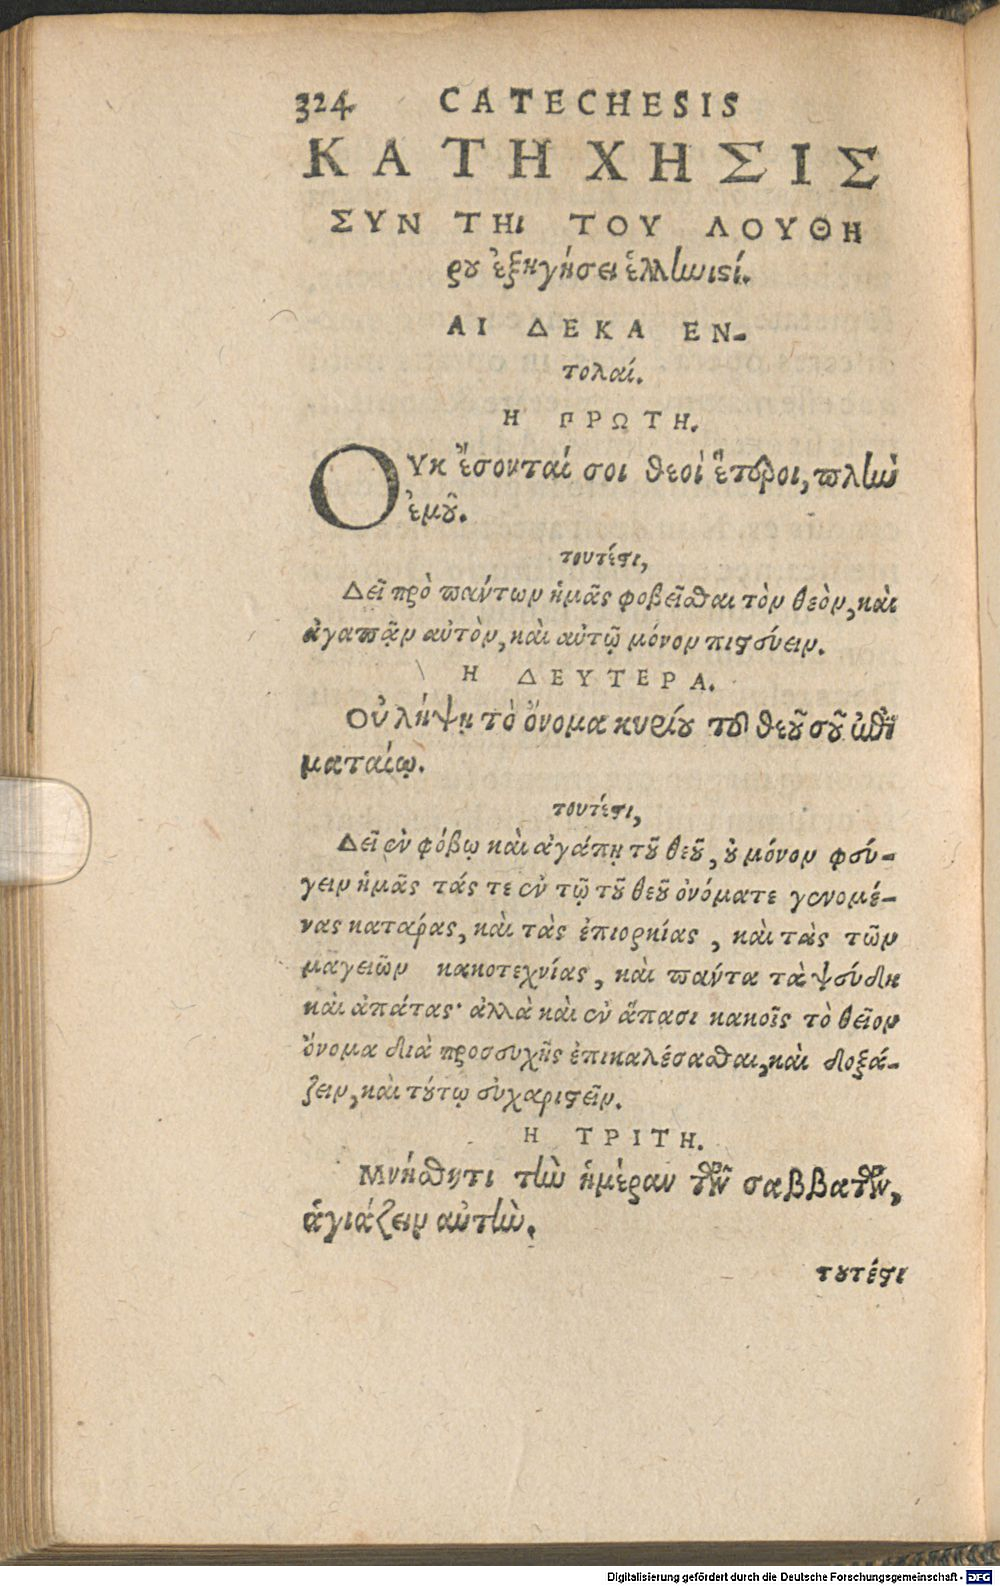 324 CATECHESIS
ΚΑΤΗΧΗΣΙΣ
ΣΥΝ ΤΗΙ ΤΟΥ ΛΟΥΘΗ
ρου ἐξηγήσει ἑλληνιστί.
ΑΙ ΔΕΚΑ ΕΝ-
τολαί.
Η ΠΡΩΤΗ.
ΟΥκ ἔσονταί σοι θεοὶ ἕτεροι, πλὴν
ἐμοῦ.
τουτέστι,
Δεῖ πρὸ πάντων ἡμᾶς φοβεῖσθαι τὸν θεὸν, καὶ
ἀγαπᾷν αὐτὸν, καὶ αὐτῷ μόνον πιστεύειν.
Η ΔΕΥΤΕΡΑ.
Οὐ λήψῃ τὸ ὄνομα κυρίου τοῦ θεοῦ σοῦ ἐπὶ
ματαίῳ.
τουτέστι,
Δεῖ ἐν φόβῳ καὶ ἀγάπῃ τοῦ θεοῦ, οὐ μόνον φεύ-
γειν ἡμᾶς τάς τε ἐν τῷ τοῦ θεοῦ ὀνόματε γενομέ-
νας κατάρας, καὶ τὰς ἐπιορκίας, καὶ τὰς τῶν
μαγειῶν κακοτεχνίας, καὶ πάντα τὰ ψεύδη
καὶ ἀπάτας· ἀλλὰ καὶ ἐν ἅπασι κακοῖς τὸ θεῖον
ὄνομα διὰ προσευχῆς ἐπικαλέσασθαι, καὶ δοξά-
ζειν, καὶ τούτῳ εὐχαριστεῖν.
Η ΤΡΙΤΗ.
Μνήσθητι τὴν ἡμέραν τῶν σαββάτων,
ἁγιάζειν αὐτὴν.
τουτέστι
Digitalisierung gefördert durch die Deutsche Forschungsgemeinschaft - DFG